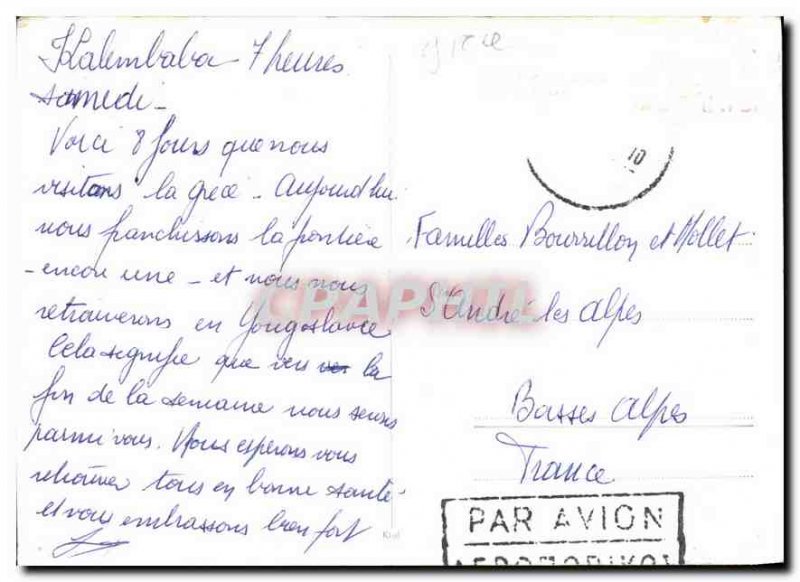 Kalembaba 7 heures
samedi -
Voici 8 jours que nous
visitons la grece - Aujourd'hui
nous franchissons la frontière
- encore une - et nous nous
retrouverons en Yougoslavie
Cela signifie que vers la
fin de la semaine nous serons
parmi vous. Nous espérons vous
retrouver tous en bonne santé
et vous embrassons bien fort
Grèce
10
Familles Bourrillon et Mollet
St André les alpes
Basses alpes
France
PAR AVION
ΑΕΡΟΠΟΡΙΚΩΣ
CPAPHIL